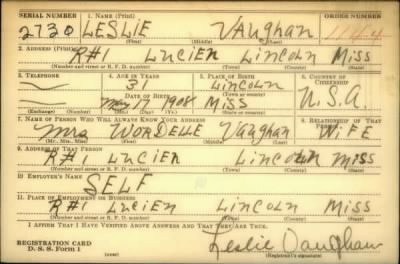 SERIAL NUMBER 1. NAME (Print) ORDER NUMBER
2730 LESLIE VAUGHAN
(First) (Middle) (Last)
2. ADDRESS (Print)
R#1 LUCIEN LINCOLN MISS
(Number and street or R. F. D. number) (Town) (County) (State)
3. TELEPHONE 4. AGE IN YEARS 5. PLACE OF BIRTH 6. COUNTRY OF CITIZENSHIP
31 LINCOLN
DATE OF BIRTH (Town or county)
May 17 1908 MISS U.S.A.
(Exchange) (Number) (Mo.) (Day) (Yr.) (State or country)
7. NAME OF PERSON WHO WILL ALWAYS KNOW YOUR ADDRESS 8. RELATIONSHIP OF THAT PERSON
Mrs WORDELLE Vaughan WIFE
(Mr., Mrs., Miss) (First) (Middle) (Last)
9. ADDRESS OF THAT PERSON
R#1 LUCIEN LINCOLN MISS
(Number and street or R. F. D. number) (Town) (County) (State)
10. EMPLOYER'S NAME
SELF
11. PLACE OF EMPLOYMENT OR BUSINESS
R#1 LUCIEN LINCOLN MISS
(Number and street or R. F. D. number) (Town) (County) (State)
I AFFIRM THAT I HAVE VERIFIED ABOVE ANSWERS AND THAT THEY ARE TRUE.
REGISTRATION CARD
D. S. S. Form 1 (over)
Leslie Vaughan
(Registrant's signature)